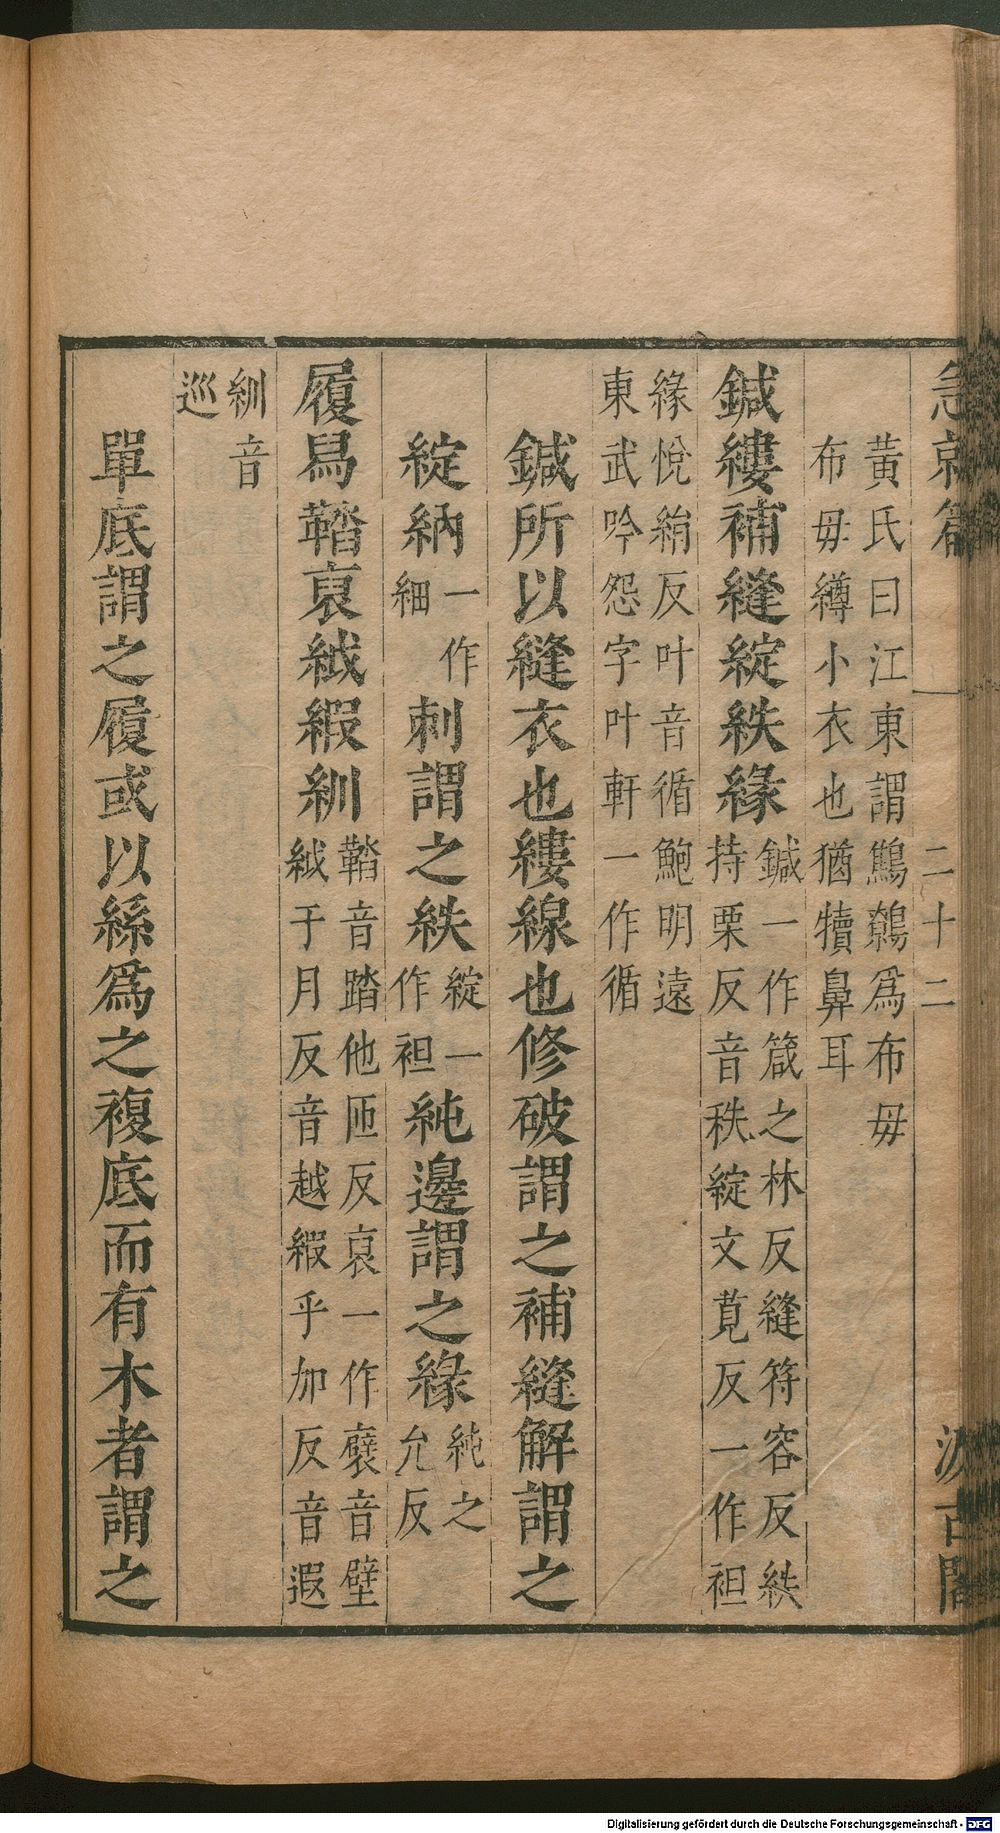 急就篇 二十二 汲古閣
黃氏曰江東謂鷦鷯爲布毋
布毋繜小衣也猶犢鼻耳
鍼縷補縫綻紩緣
鍼一作箴之林反縫符容反紩
持栗反音秩綻文莧反一作袒
緣悅絹反叶音循鮑明遠
東武吟怨字叶軒一作循
鍼所以縫衣也縷線也修破謂之補縫解謂之
綻納一作細刺謂之紩綻一作袒純邊謂之緣純之允反
履舄鞜裒絨緞紃
鞜音踏他匝反裒一作襞音壁
絨于月反音越緞乎加反音遐
紃音
巡
單底謂之履或以絲爲之複底而有木者謂之
Digitalisierung gefördert durch die Deutsche Forschungsgemeinschaft - DFG